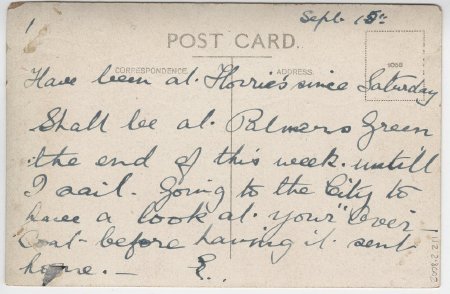 1
Sept. 15th
POST CARD.
CORRESPONDENCE
ADDRESS
Have been at Horrie's since Saturday
Shall be at Palmers Green
the end of this week until
I sail. Going to the City to
have a look at your "Over-
Coat" before having it sent
home. — E..